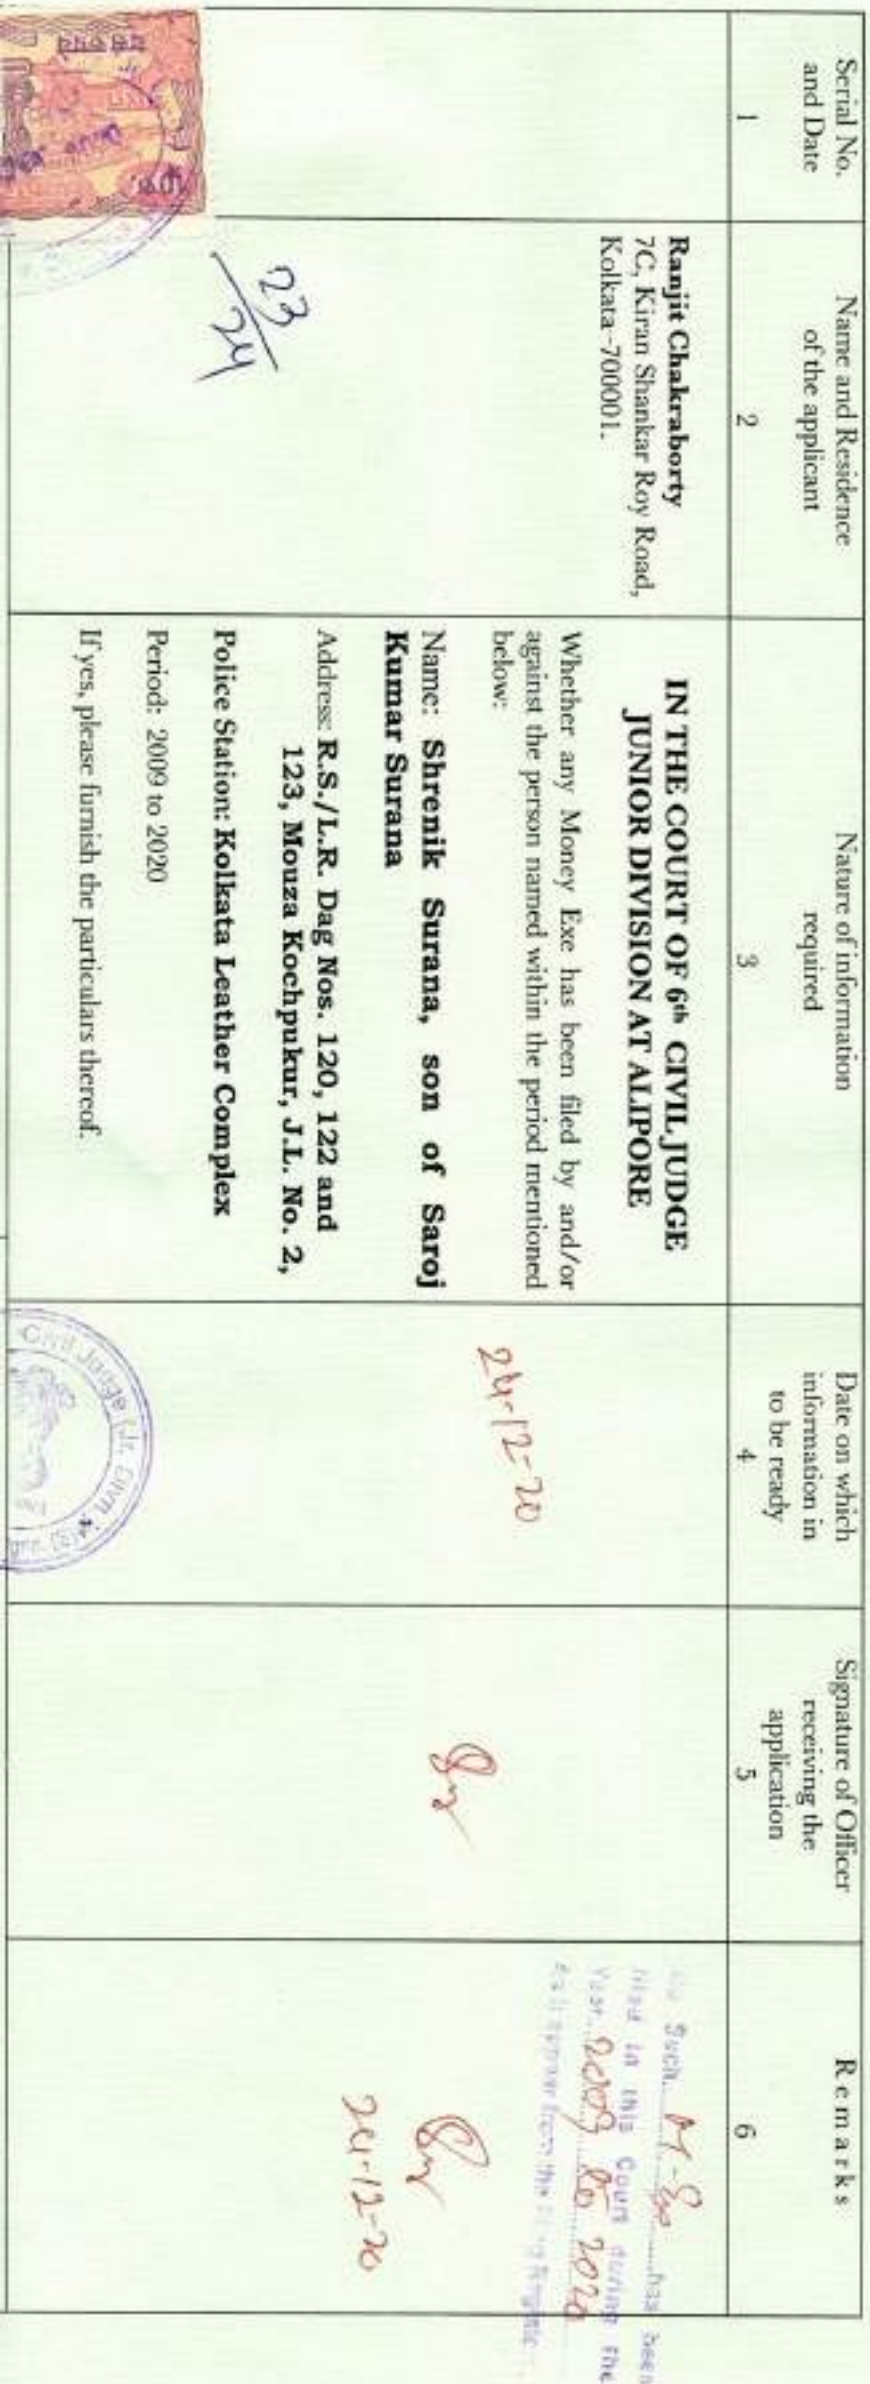 Serial No.
and Date
Name and Residence
of the applicant
Nature of information
required
Date on which
information in
to be ready
Signature of Officer
receiving the
application
Remarks
1
2
3
4
5
6
Ranjit Chakraborty
7C, Kiran Shankar Roy Road,
Kolkata-700001.
23
24
IN THE COURT OF 6th CIVIL JUDGE
JUNIOR DIVISION AT ALIPORE
Whether any Money Exe has been filed by and/or
against the person named within the period mentioned
below:
Name: Shrenik Surana, son of Saroj
Kumar Surana
Address: R.S./L.R. Dag Nos. 120, 122 and
123, Mouza Kochpukur, J.L. No. 2,
Police Station: Kolkata Leather Complex
Period: 2009 to 2020
If yes, please furnish the particulars thereof.
24-12-20
Such M-Exe has been
filed in this Court during the
Year 2009 to 2020
As it appear from the Filing
24-12-20
Civil Judge (Jr. Divn.